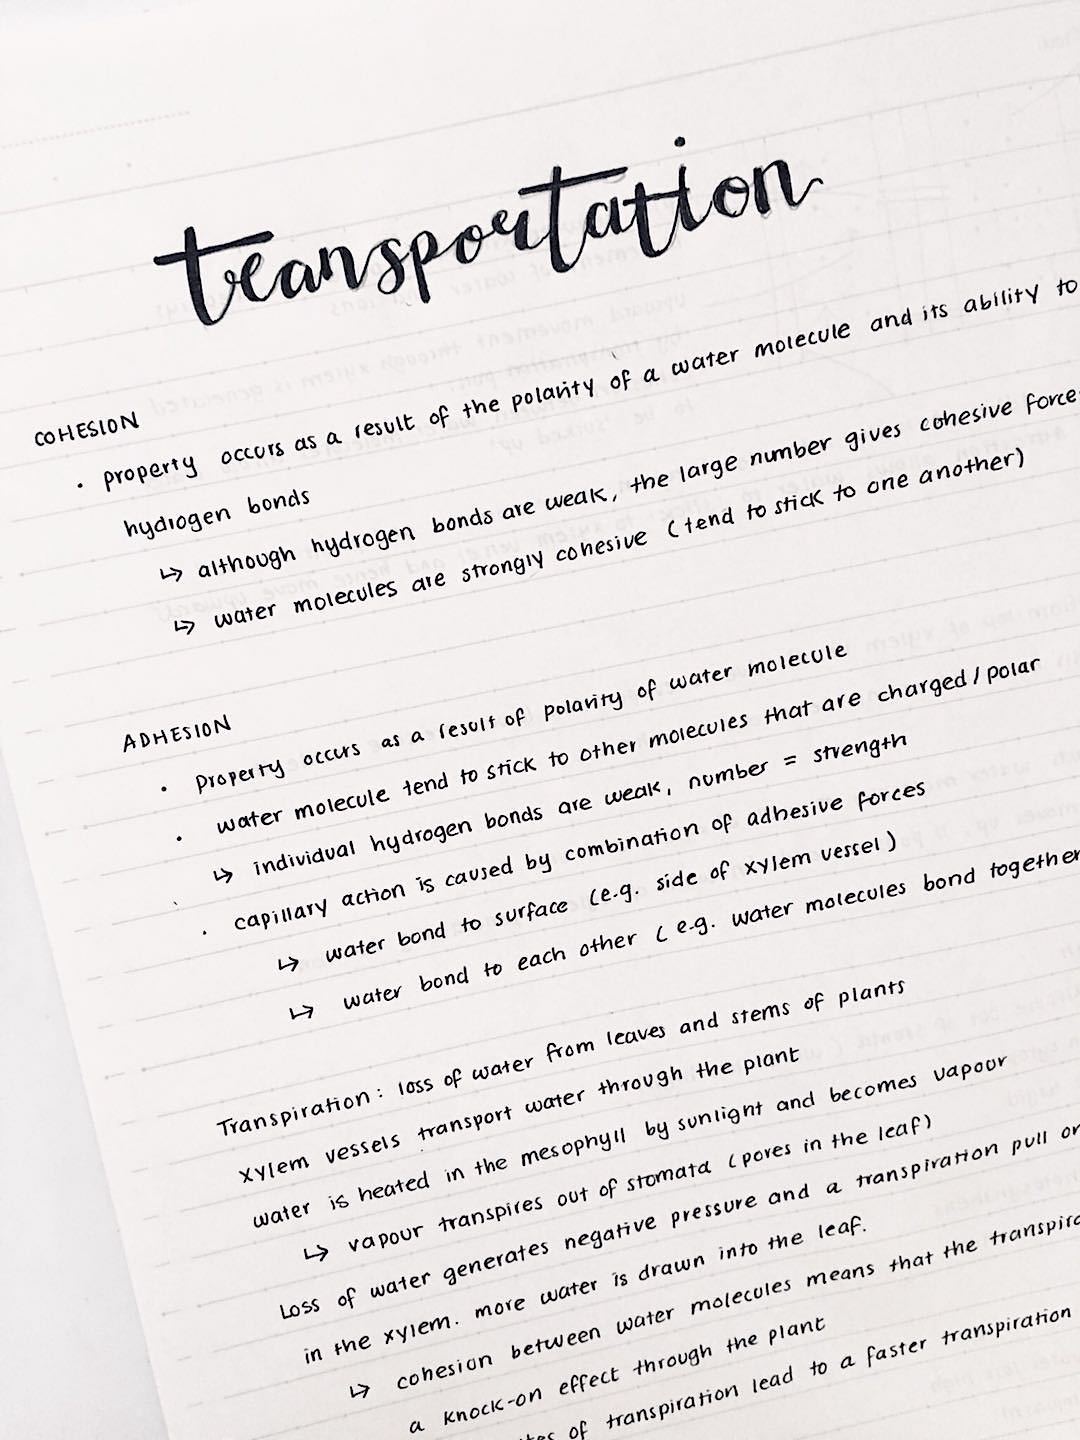 transportation
COHESION
• property occurs as a result of the polarity of a water molecule and its ability to
hydrogen bonds
↳ although hydrogen bonds are weak, the large number gives cohesive force
↳ water molecules are strongly cohesive (tend to stick to one another)
ADHESION
• Property occurs as a result of polarity of water molecule
• water molecule tend to stick to other molecules that are charged/polar
↳ individual hydrogen bonds are weak, number = strength
• capillary action is caused by combination of adhesive forces
↳ water bond to surface (e.g. side of xylem vessel)
↳ water bond to each other (e.g. water molecules bond together
Transpiration: loss of water from leaves and stems of plants
xylem vessels transport water through the plant
water is heated in the mesophyll by sunlight and becomes vapour
↳ vapour transpires out of stomata (pores in the leaf)
Loss of water generates negative pressure and a transpiration pull
in the xylem. more water is drawn into the leaf.
↳ cohesion between water molecules means that the
a knock-on effect through the plant
of transpiration lead to a faster transpiration